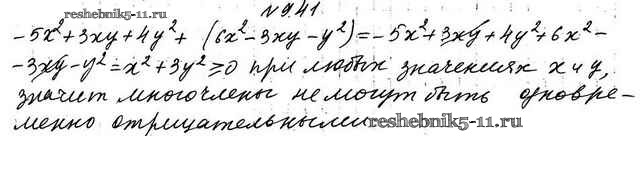 № 9.41
reshebnik5-11.ru
-5x²+3xy+4y²+(6x²-3xy-y²)=-5x²+3xy+4y²+6x²-
-3xy-y²=x²+3y²≥0 при любых значениях x и y,
значит многочлены не могут быть одновре-
менно отрицательными
reshebnik5-11.ru